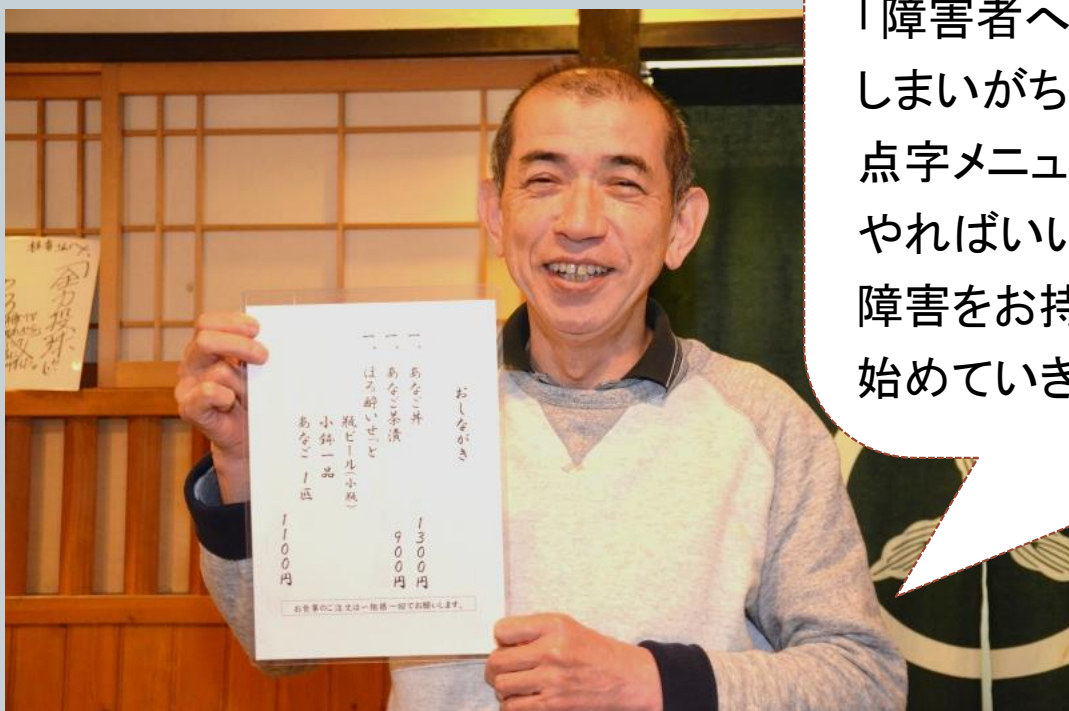 「障害者へ
しまいがち
点字メニュ
やればいい
障害をお持
始めていき
おしながき
一、あなご丼 1300円
一、あなご茶漬 900円
一、ほろ酔いせっと
瓶ビール(小瓶)
小鉢一品
あなご1匹 1100円
お食事のご注文は一組様一回でお願いします。
全力投球